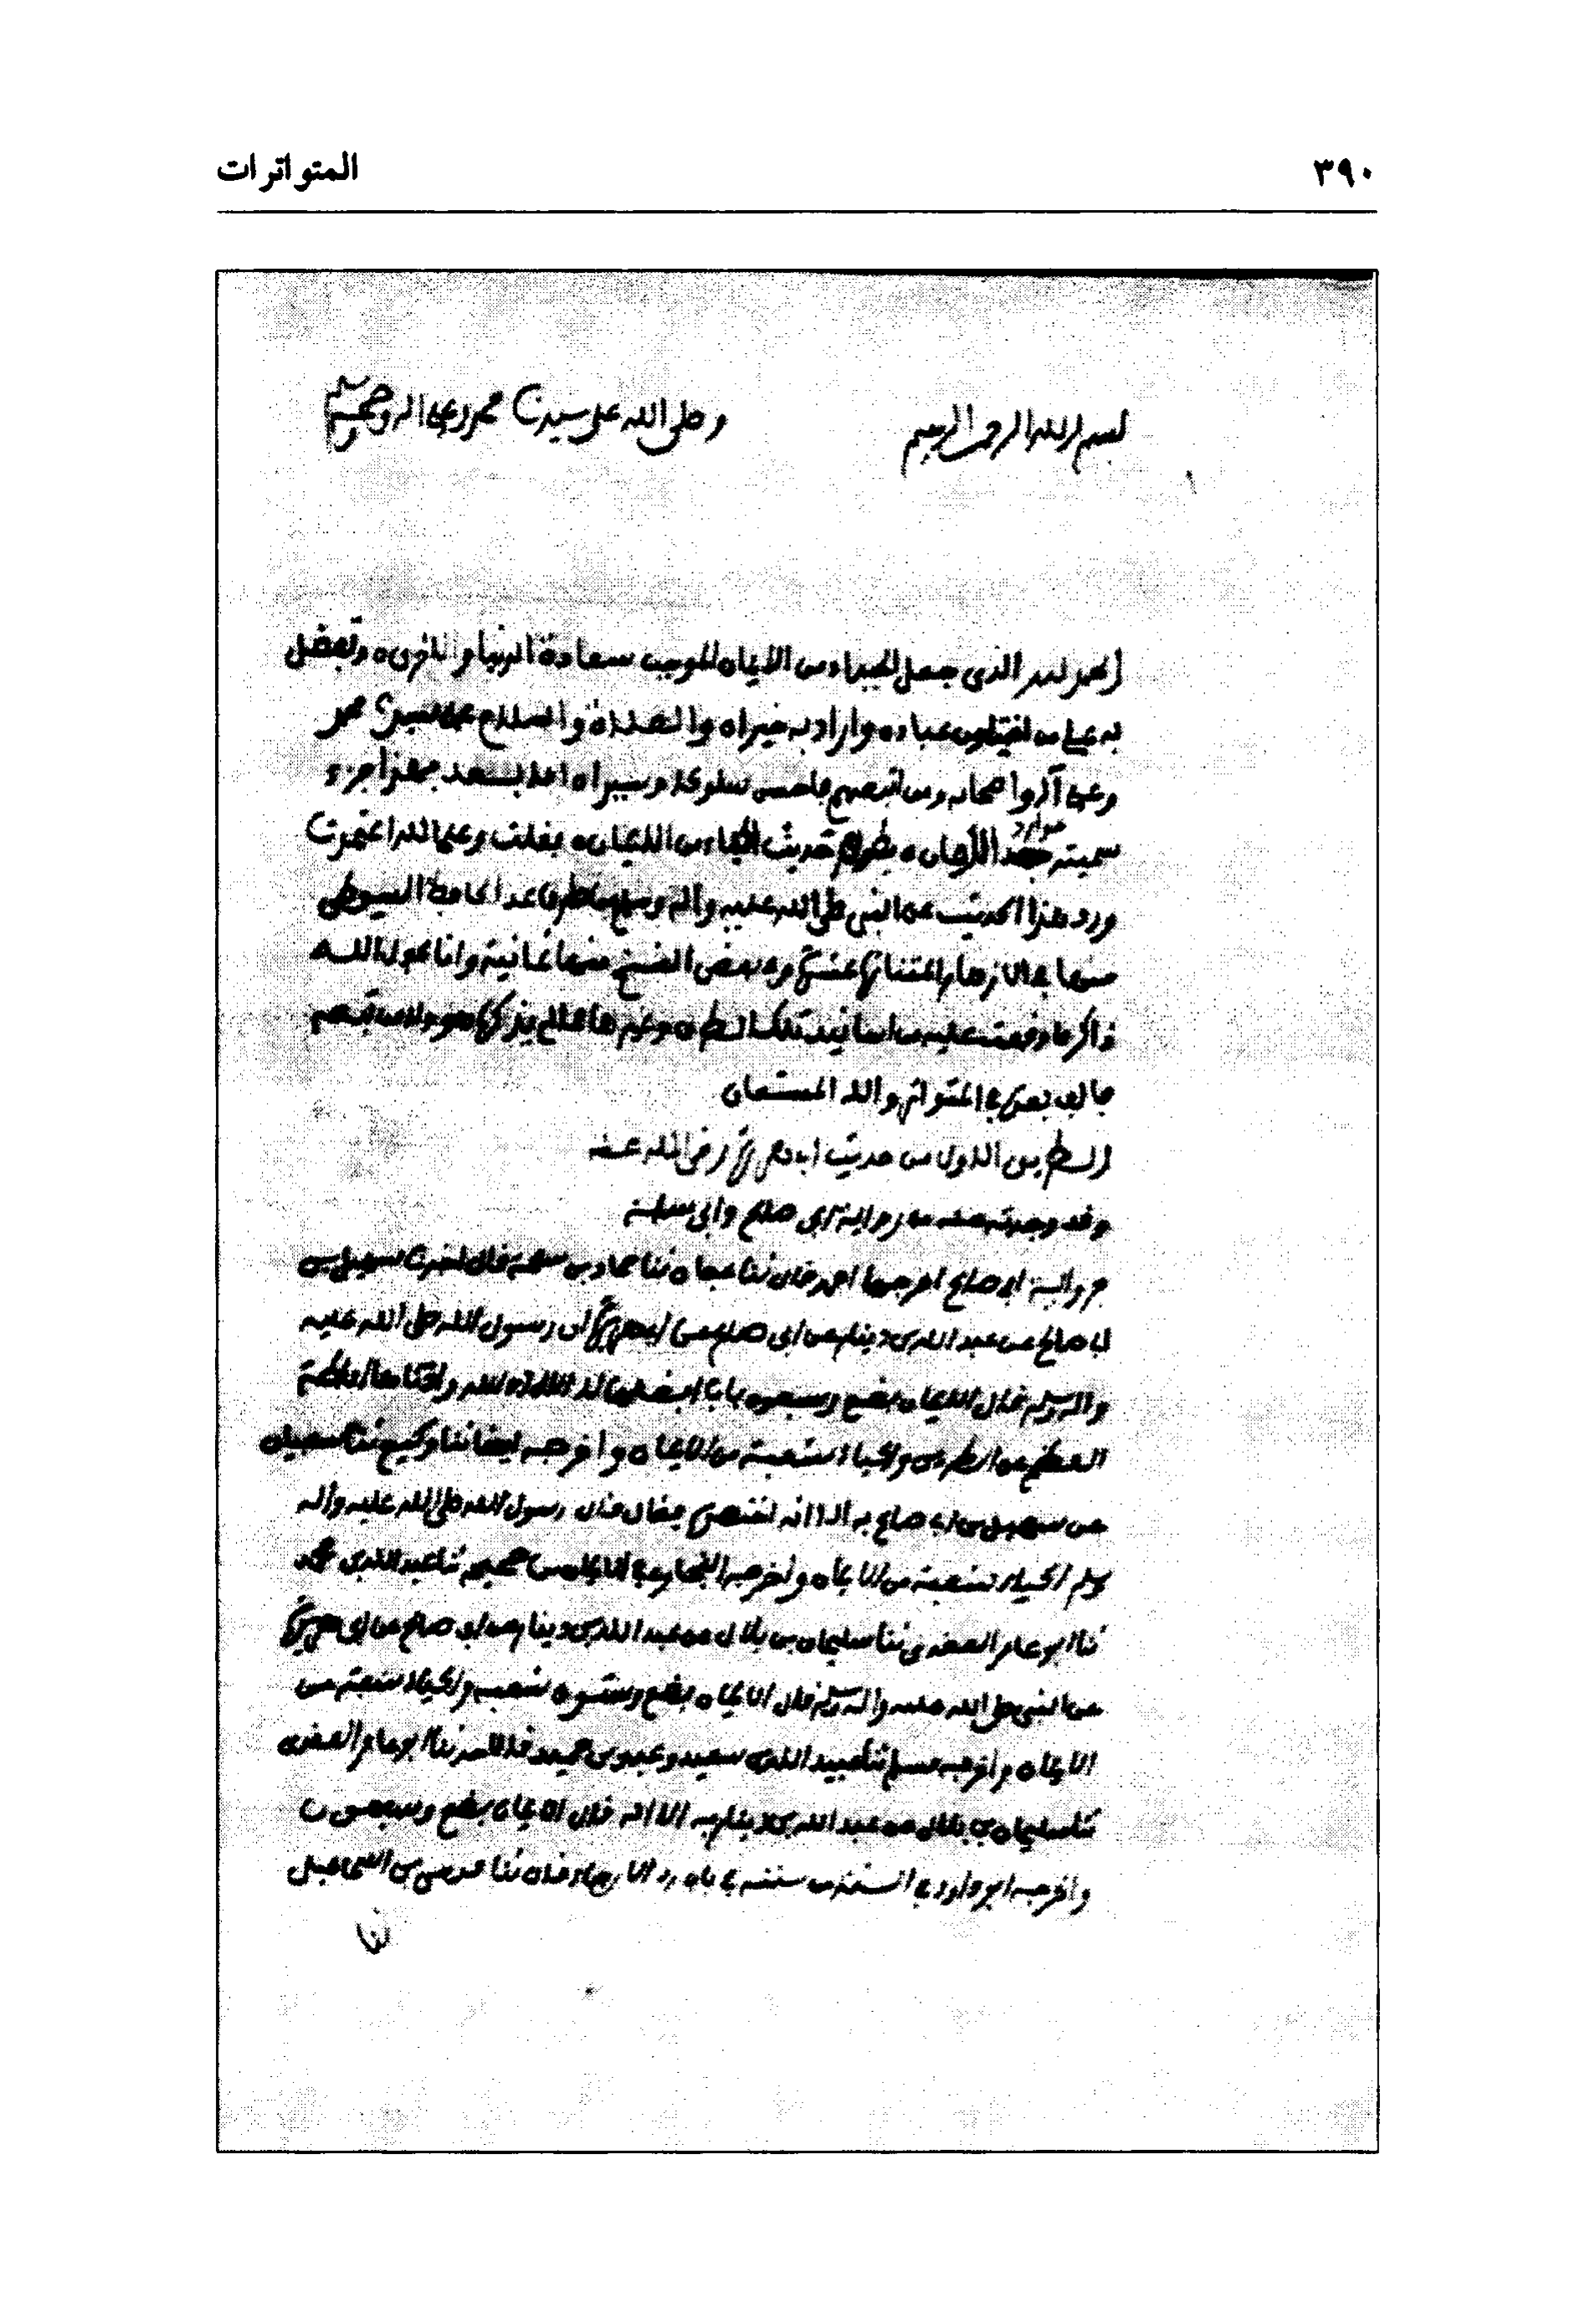 ٣٩٠ المتواترات
بسم الله الرحمن الرحيم وصلى الله على سيدنا محمد وعلى اله وصحبه وسلم
الحمد لله الذي جعل الحياء من الايمان الموجب سعادة الدنيا والاخرى وتفضل
به على من عباده واراد به خيرا والصلاة والسلام على سيدنا محمد
وعلى آله واصحابه ومن تبعهم باحسن سلوكا وسيرا اما بعد فهذا جزء
سميته موارد الأمان بطرق حديث الحياء من الايمان فقلت وعلى الله اعتمدت
ورد هذا الحديث عن النبي صلى الله عليه وآله وسلم من طرق عد الحافظ السيوطي
منها في الازهار المتناثرة عشرة وفي بعض النسخ منها ثمانية وانا بحول الله
ذاكر ما وقفت عليه من اسانيد تلك الطرق وغيرها مما لم يذكره هو ولا من تبعه
والله المستعان
الطريق الاول من حديث ابي هريرة رضي الله عنه
وقد وجدته عنه من رواية ابي صالح وابي سلمة
رواية ابي صالح اخرجها احمد قال ثنا عفان ثنا حماد بن سلمة قال اخبرنا سهيل بن
ابي صالح عن عبد الله بن دينار عن ابي صالح عن ابي هريرة ان رسول الله صلى الله عليه
واله وسلم قال الايمان بضع وسبعون بابا افضلها لا اله الا الله وادناها اماطة
العظم عن الطريق والحياء شعبة من الايمان واخرجه ايضا ثنا وكيع ثنا سفيان
عن سهيل بن ابي صالح به الا انه اختصره فقال قال رسول الله صلى الله عليه وآله
وسلم الحياء شعبة من الايمان واخرجه البخاري في الايمان من صحيحه ثنا عبد الله بن محمد
ثنا ابو عامر العقدي ثنا سليمان بن بلال عن عبد الله بن دينار عن ابي صالح عن ابي هريرة
عن النبي صلى الله عليه واله وسلم قال الايمان بضع وستون شعبة والحياء شعبة من
الايمان واخرجه مسلم ثنا عبيد الله بن سعيد وعبد بن حميد قالا حدثنا ابو عامر العقدي
ثنا سليمان بن بلال عن عبد الله بن دينار به الا انه قال الايمان بضع وسبعون
واخرجه ابو داود في السنة من سننه في باب رد الارجاء قال ثنا موسى بن اسماعيل
ثنا